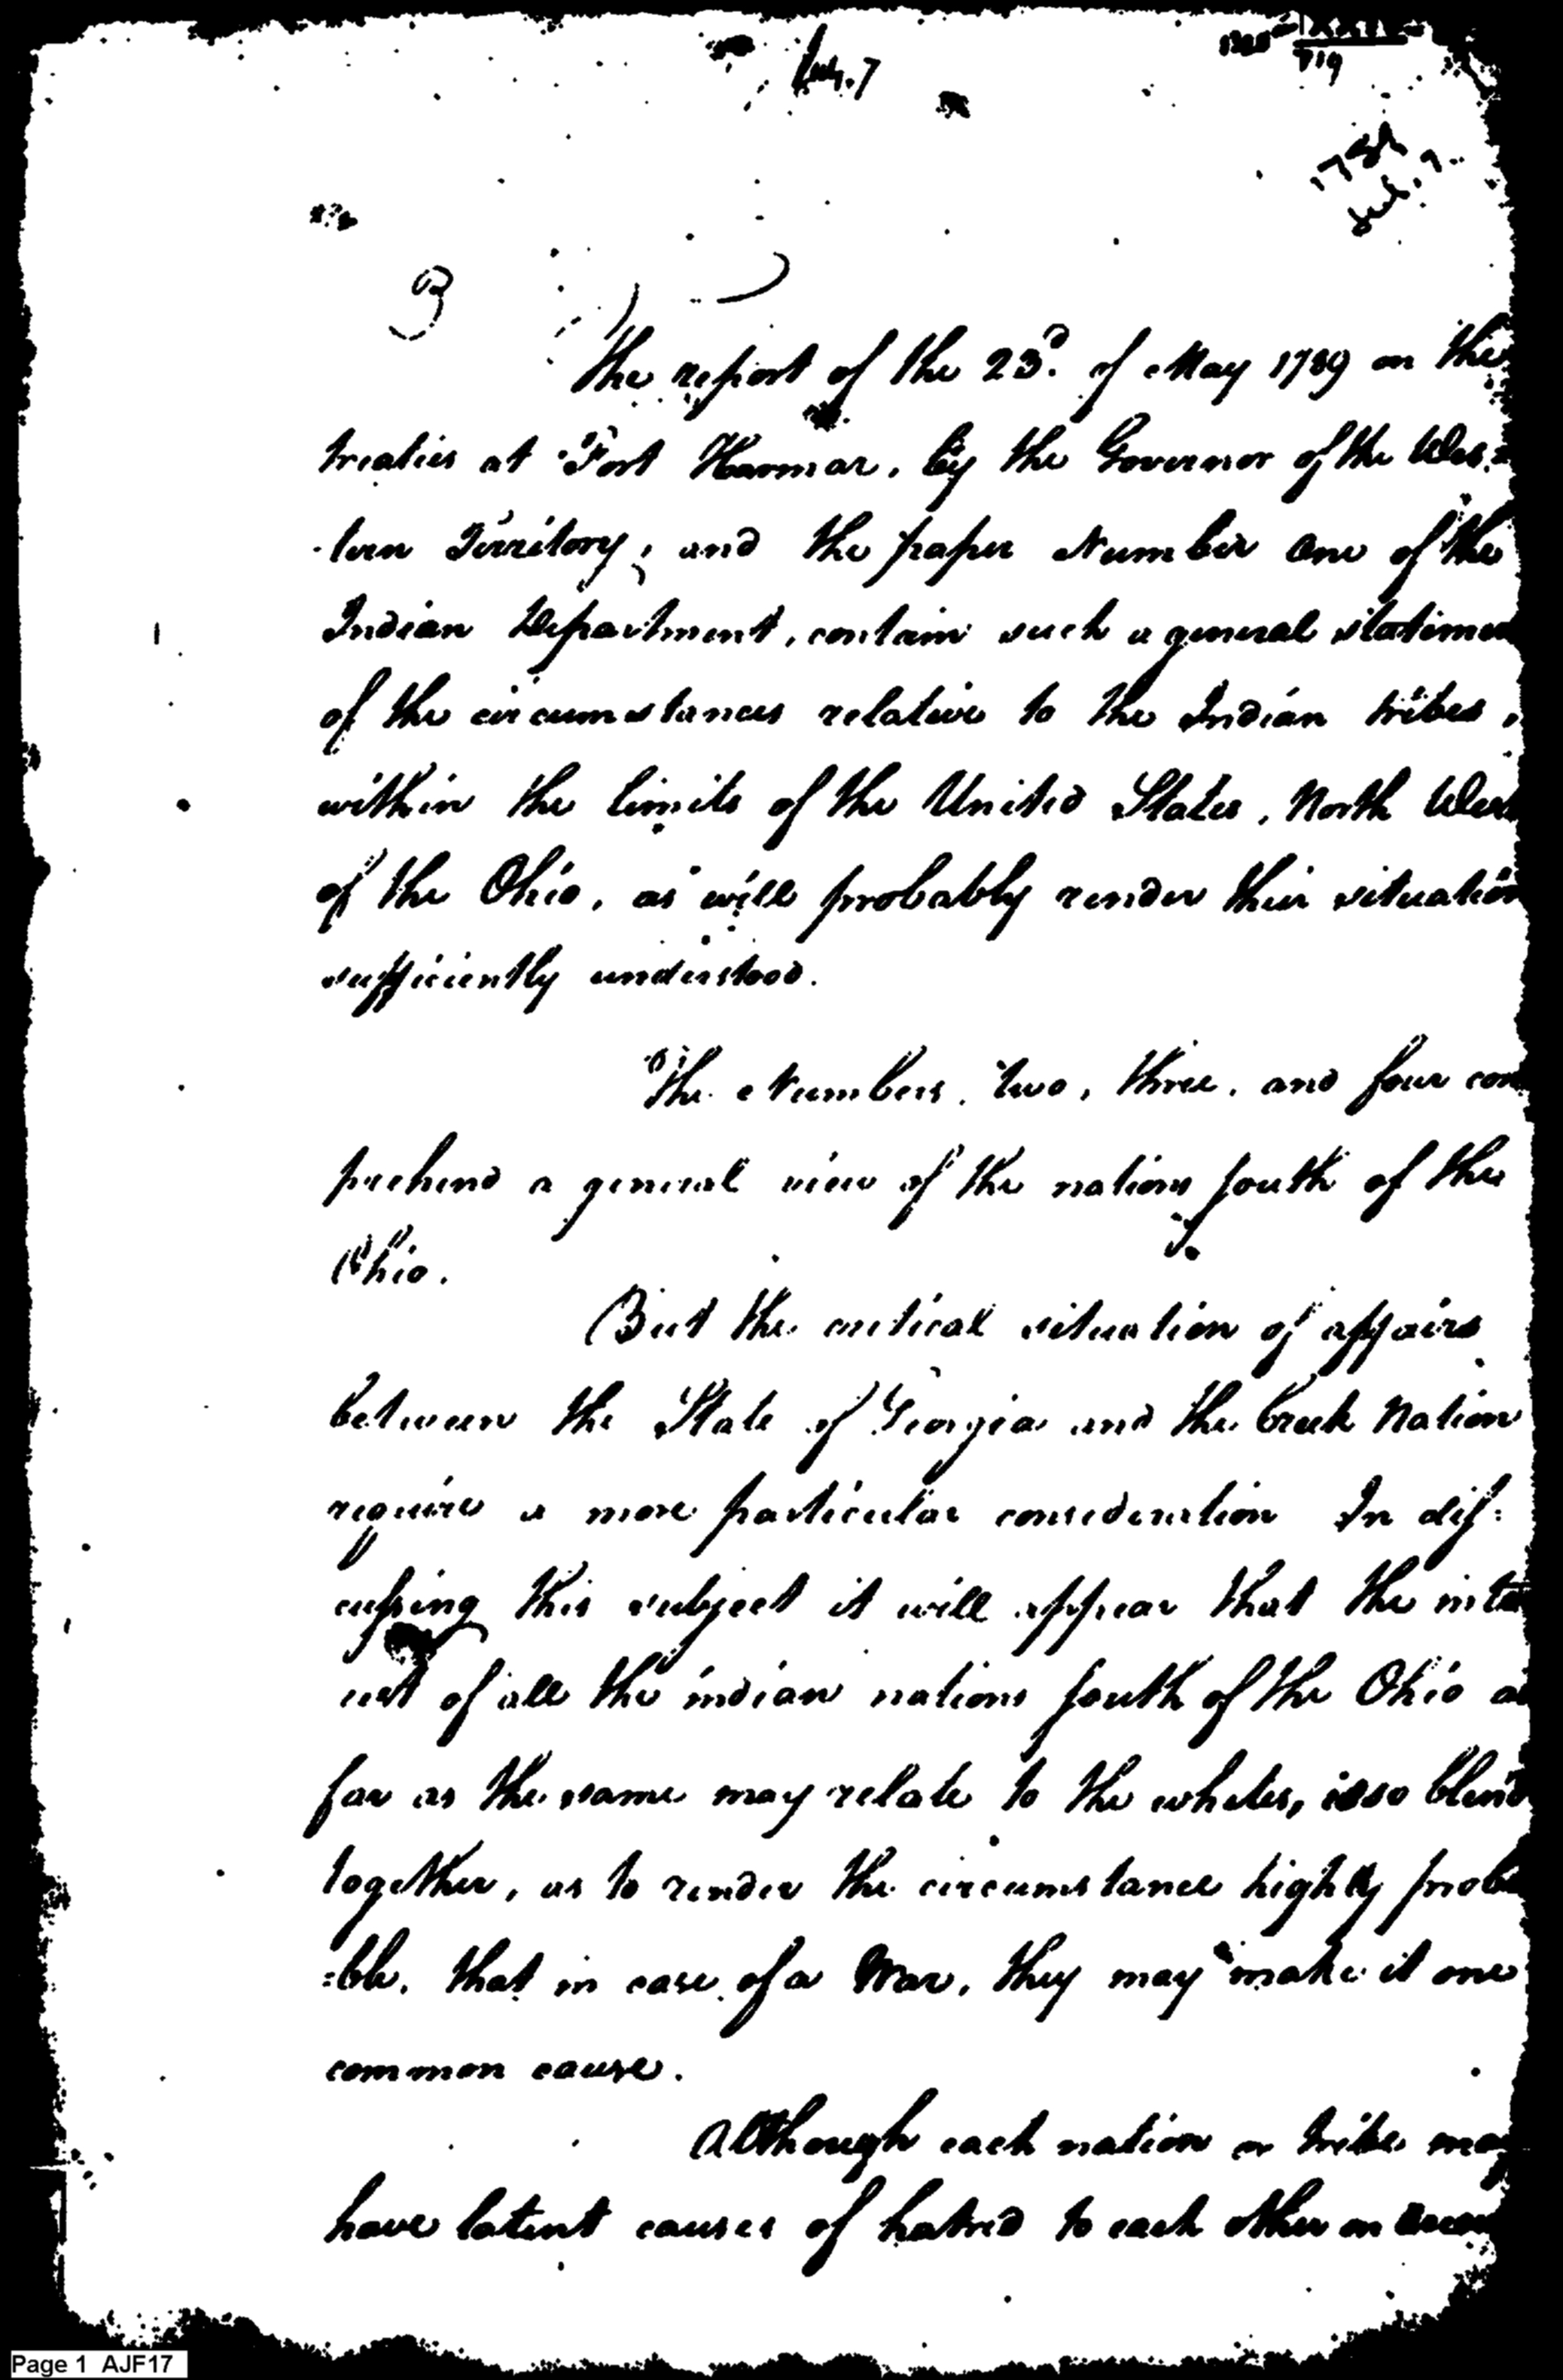 July. 7
719
1789
July. 7.
B
The report of the 23d. of May 1789 on the
treaties at Fort Harmar, by the Governor of the Wes=
-tern Territory, and the paper Number One of the
Indian Department, contain such a general statemen
of the circumstances relative to the Indian tribes,
within the limits of the United States, North Wes
of the Ohio, as will probably render their situation
sufficiently understood.
The Numbers, two, three, and four com
prehend a general view of the nations south of the
Ohio.
But the critical situation of affairs
between the State of Georgia and the Creek Nation
require a more particular consideration In dis=
cussing this subject it will appear that the inte
rest of all the indian nations south of the Ohio as
far as the same may relate to the whites, is so blend
together, as to render the circumstance highly proba
=ble, that in case of a War, they may make it one
common cause.
Although each nation or tribe may
have latent causes of hatred to each other on
Page 1 AJF17